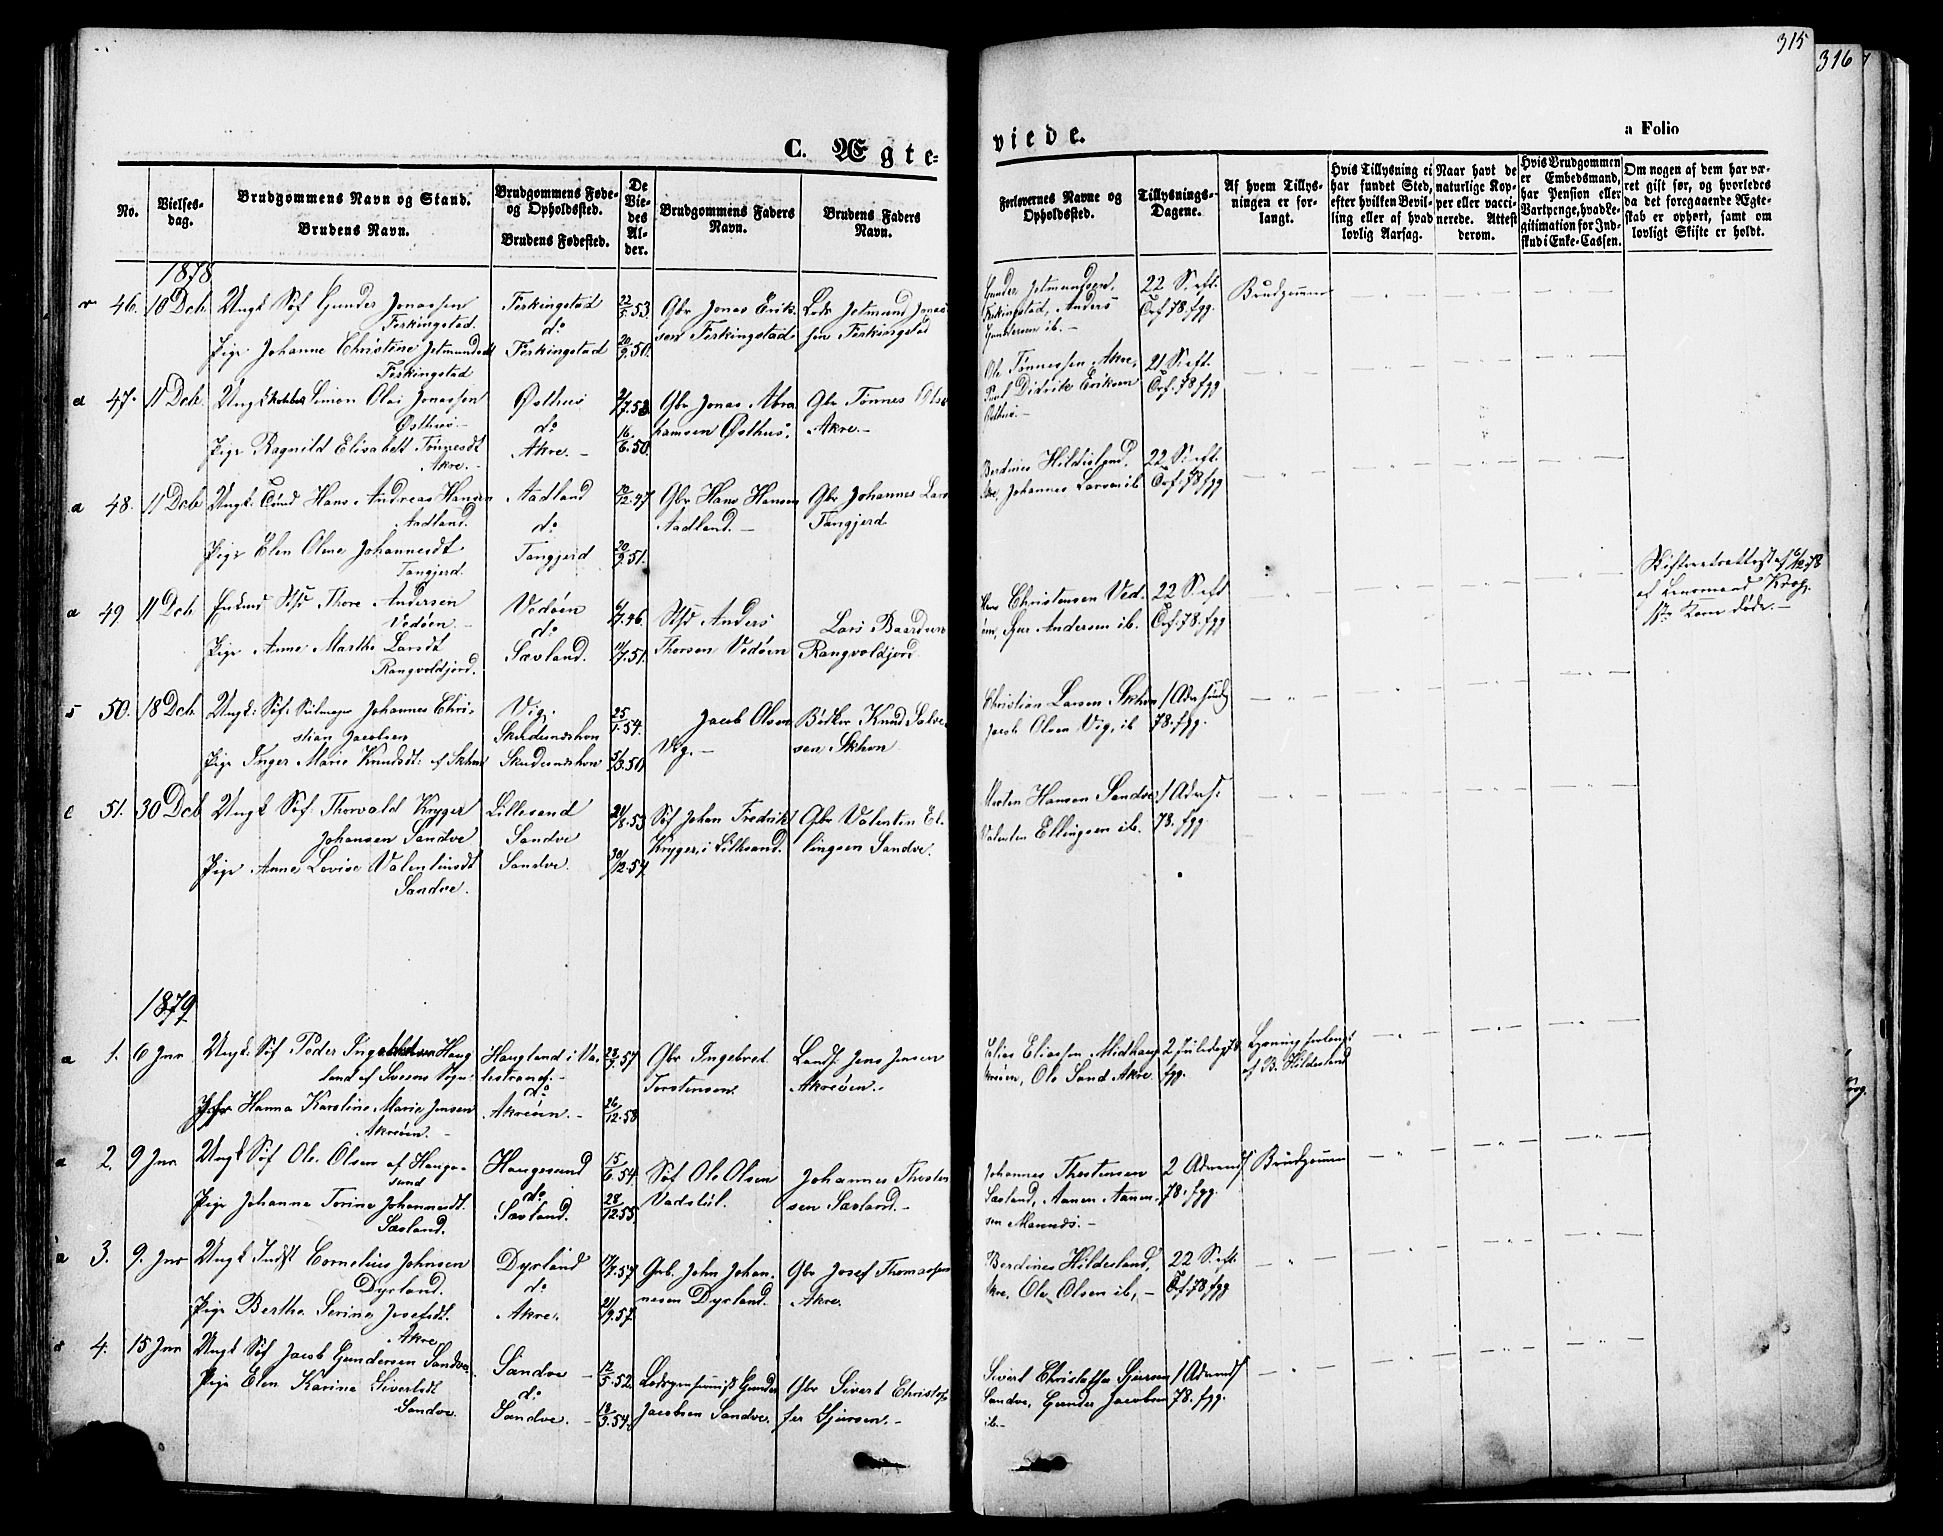 315
316
C. Ægte-
viede.
a Folio
No.
Vielses-
dag.
Brudgommens Navn og Stand.
Brudens Navn.
Brudgommens Føde-
og Opholdssted.
Brudens Fødested.
De
Vie-
des
Al-
der.
Brudgommens Faders
Navn.
Brudens Faders
Navn.
Forlovernes Navne og
Opholdssted.
Tillysnings-
Dagene.
Af hvem Tillys-
ningen er for-
langt.
Hvis Tillysning ei
har fundet Sted,
efter hvilken Bevil-
ling eller af hvad
lovlig Aarsag.
Naar havt de
naturlige Kop-
per eller vacci-
nerede. Attest
derom.
Hvis Brudgommen
er Embedsmand,
har Pension eller
Vartpenge, hvad Le-
gitimation for Ind-
skud i Enke-Cassen.
Om nogen af dem har væ-
ret gift før, og hvorledes
da det foregaaende Ægte-
skab er ophørt, samt om
lovligt Skifte er holdt.
1878
46. 10 Dcb. Ungk Søf Gunder Jonassen
Ferkingstad
Pige Johanne Christine Jetmundsdt
Ferkingstad
Ferkingstad
do
Ferkingstad
22/5 53.
20/9 50.
Gbr Jonas Erik-
sen Ferkingstad
Lods Jetmund Jonas
sen Ferkingstad
Gunder Jetmundsen,
Ferkingstad, Anders
Gundersen ib. -
22 S. eft.
Trf 78, fgg.
Brudgommen
a 47. 11 Dcb. Ungk Simon Olai Jonassen
Østhus -
Pige Ragnild Elisabeth Tönnesdt
Akre. -
Østhus
do
Akre. -
16/6 50.
Gbr Jonas Abra
hamsen Østhus.
Gbr Tönnes Olse
Akre. -
Ole Tönnessen Akre,
Poul Didrik Eriksen
Østhus. -
21 S. eft.
Trf. 78 fgg
a 48. 11 Dcb Ungk. Hans Andreas Hansen
Aadland.
Pige Elen Oline Johannesdt
Tangjerd.
Aadland
do
Tangjerd
20/9 51.
Gbr Hans Hansen
Aadland. -
Gbr Johannes Lars
Tangjerd
Berdines Hildesland,
Akre, Johannes Larsen ib
22 S. eft.
Trf. 78 fgg
a 49 11 Dcb Enkmd Thore Andersen
Vedøen. -
Pige Anne Marthe Larsdt
Rangvoldjord.
Vedøen
do
Sævland.
Anders
Thorsen Vedøen
Lars Baardsen
Rangvoldjord
Hans Christensen Ved-
øen, Andersen ib.
22 S. eft
Trf. 78. fgg
Skifteretsattest af 6/12 78
af Lensmand Krog,
1ste Kone døde. -
s 50. 18 Dcb. Ungk. Søf. Johannes Chri-
stian Jacobsen
Pige Inger Marie Knudsdt. af Skhvn
Vig.
Skudesneshvn
Skudesneshvn
25/1 54.
Jacob Olsen
Vig. -
Bødker Knud Salve
sen Skhvn
Christian Larsen Skhvn
Jacob Olsen Vig, ib
78. fgg.
51. 30 Dcb Ungk Søf. Thorvald Kryger
Johansen Sandve
Pige Anne Lovise Valentinsdt
Sandve.
Lillesand
Sandve
Sandve.
30/12 54
Søf Johan Fredrik
Kryger, i Lillesand.
Gbr Valentin El-
lingsen Sandve.
Morten Hansen Sandve,
Valentin Ellingsen ib.
78. fgg.
1879
a 1. 6 Jnr Ungk. Søf Peder Ingebretsen Haug
land af Sveens Sogn
Pige Hanna Karoline Marie Jensen
Akreøen. -
Haugland i Va-
lestrand. -
do
Akreøen. -
26/12 58
Gbr Ingebret
Torstensen
Landh. Jens Jensen
Akreøen. -
Elias Eliassen Midhaug
Akreøen, Ole Sand Akre
2 Juledag 78
fgg.
Lysning forlangt
af B. Hildesland
a 2. 9 Jnr Ungk Søf Ole Olsen af Hauge-
sund
Pige Johanna Torine Johannesdt.
Sævland.
Haugesund
do
Sævland.
15/6 54.
28/12 55.
Søf Ole Olsen
Vadstøl.
Johannes Thorsten
sen Sævland. -
Johannes Thorstensen
Sævland, Aanen Aanen-
sen Mannes. -
2 Advends
78. fgg.
Brudgommen
a 3. 9. Jnr Ungk Indst Cornelius Johnsen
Dyrland.
Pige Berthe Serine Josefsdt.
Akre.
Dyrland
do
Akre.
21/9 57.
Gbr. John Johan-
nesen Dyrland.
Gbr Josef Thomassen
Akre.
Berdines Hildesland,
Akre, Ole Olsen ib, -
22 S. eft.
Trf. 78. fgg
s 4. 15 Jnr Ungk Søf Jacob Gundersen Sandve
Pige Elen Karine Sivertsdt
Sandve.
Sandve
do
Sandve. -
12/5 52.
Gunder
Jacobsen Sandve.
Gbr Sivert Christof
fer Sjursen. -
Sivert Christoffer Sjursen
Sandve, Gunder Jacobsen
ib. -
1 Advends
78. fgg.